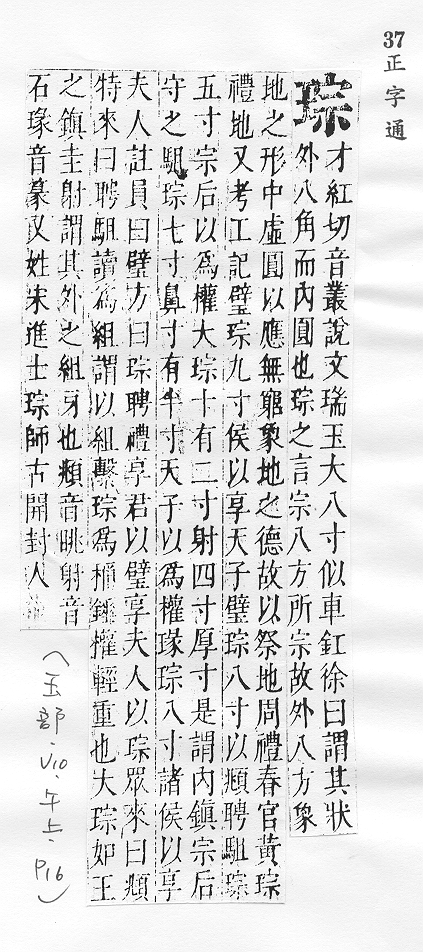 37
正字通
琮
才紅切音叢說文瑞玉大八寸似車釭徐曰謂其狀
外八角而內圓也琮之言宗八方所宗故外八方象
地之形中虛圓以應無窮象地之德故以祭地周禮春官黃琮
禮地又考工記璧琮九寸侯以享天子璧琮八寸以頫聘駔琮
五寸宗后以為權大琮十有二寸射四寸厚寸是謂內鎮宗后
守之駔琮七寸鼻寸有半寸天子以為權瑑琮八寸諸侯以享
夫人註員曰璧方曰琮聘禮享君以璧享夫人以琮眾來曰頫
特來曰聘駔讀為組謂以組繫琮為權輕重也大琮如王
之鎮圭射謂其外之組牙也頫音眺射音
石瑑音篆又姓宋進士琮師古開封人
(玉部、V10、午上、P16)